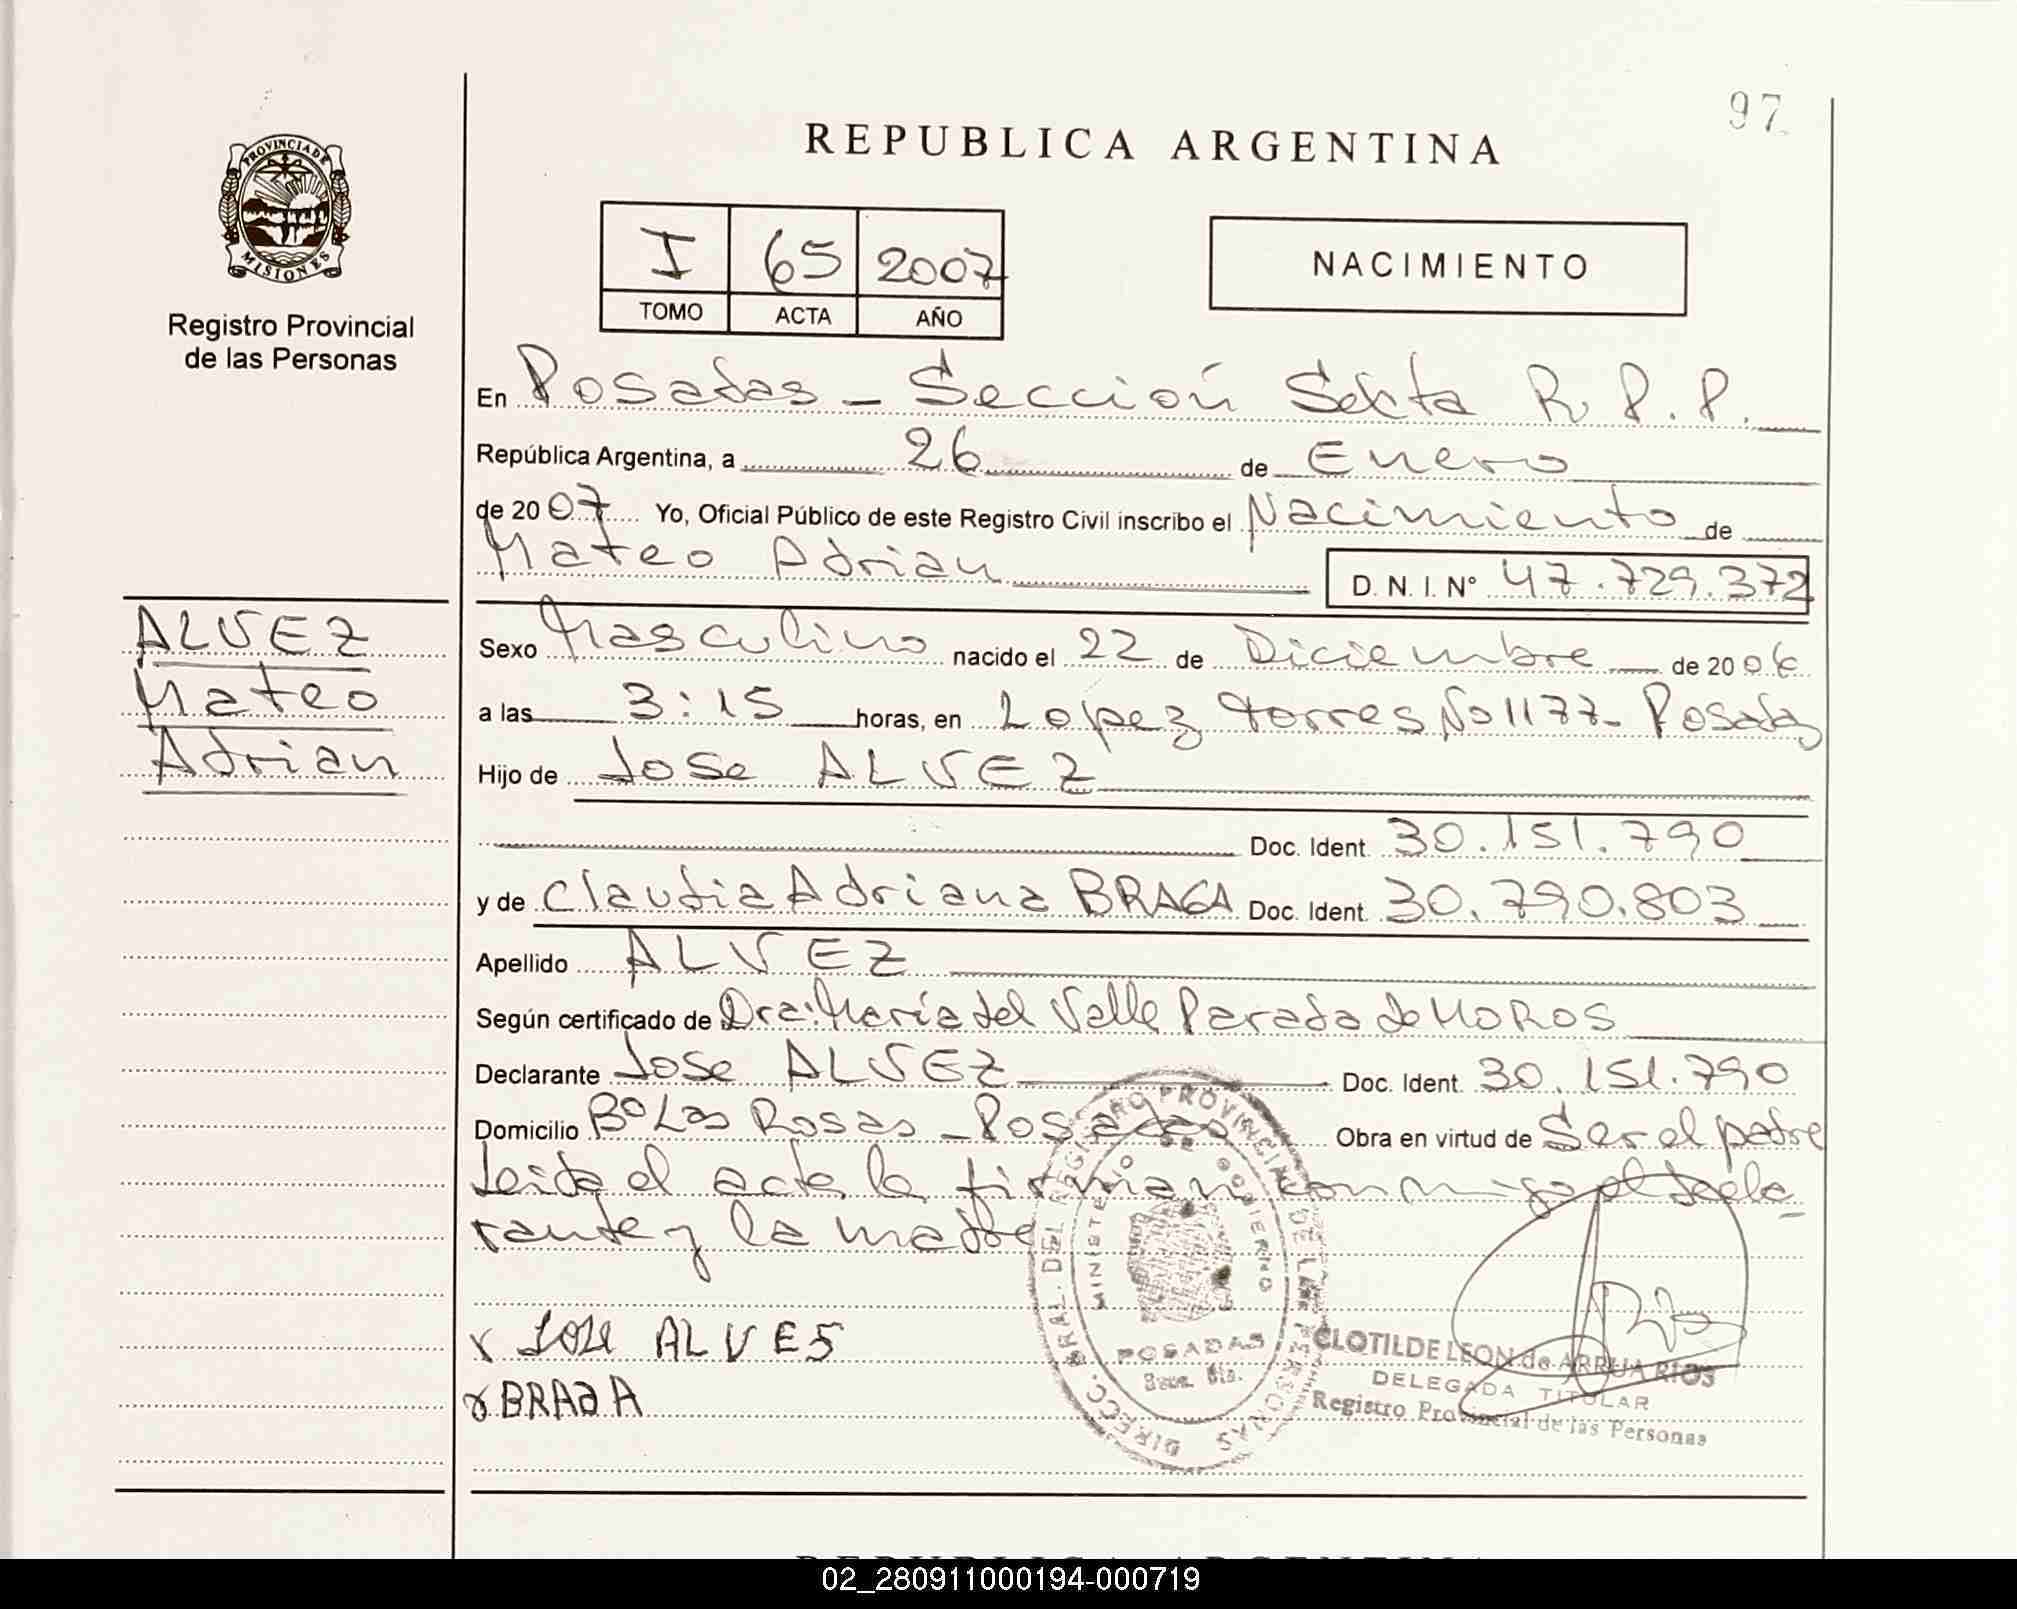 97
REPUBLICA ARGENTINA
PROVINCIA DE MISIONES
Registro Provincial
de las Personas
I 65 2007
TOMO ACTA AÑO
NACIMIENTO
En Posadas - Sección Sexta R.P.P.
República Argentina, a 26 de Enero
de 2007 Yo, Oficial Público de este Registro Civil inscribo el Nacimiento de
Mateo Adrian D. N. I. N° 47.729.372
ALVEZ
Mateo
Adrian
Sexo Masculino nacido el 22 de Diciembre de 2006
a las 3:15 horas, en Lopez torres No 1177- Posadas
Hijo de Jose ALVEZ
Doc. Ident. 30.151.790
y de Claudia Adriana BRAGA Doc. Ident. 30.790.803
Apellido ALVEZ
Según certificado de Dra: María del Valle Parada de MOROS
Declarante Jose ALVEZ Doc. Ident. 30.151.790
Domicilio Bo Las Rosas - Posadas Obra en virtud de Ser el padre
Leida el acta la firman conmigo el decla
rante y la madre
x JOSE ALVES
x BRAGA
DIRECC. GRAL. DEL REGISTRO PROVINCIAL DE LAS PERSONAS
MINISTERIO DE GOBIERNO
POSADAS
CLOTILDE LEON de ARRUA RIOS
DELEGADA TITULAR
Registro Provincial de las Personas
REPUBLICA ARGENTINA
02_280911000194-000719